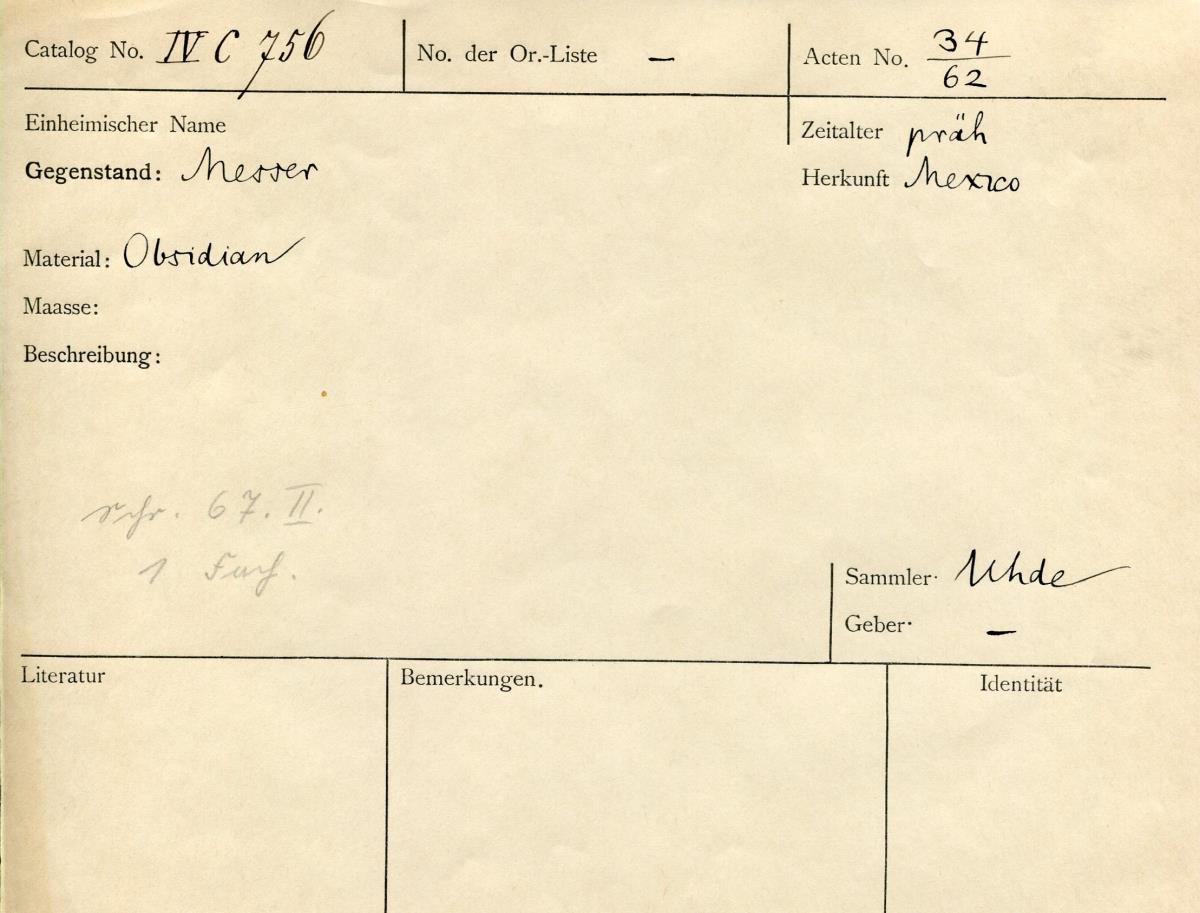 Catalog No. IV C 756
No. der Or.-Liste –
Acten No. 34/62
Einheimischer Name
Zeitalter präh
Gegenstand: Messer
Herkunft Mexico
Material: Obsidian
Maasse:
Beschreibung:
Schr. 67. II.
1 Fach.
Sammler· Uhde
Geber· –
Literatur
Bemerkungen.
Identität